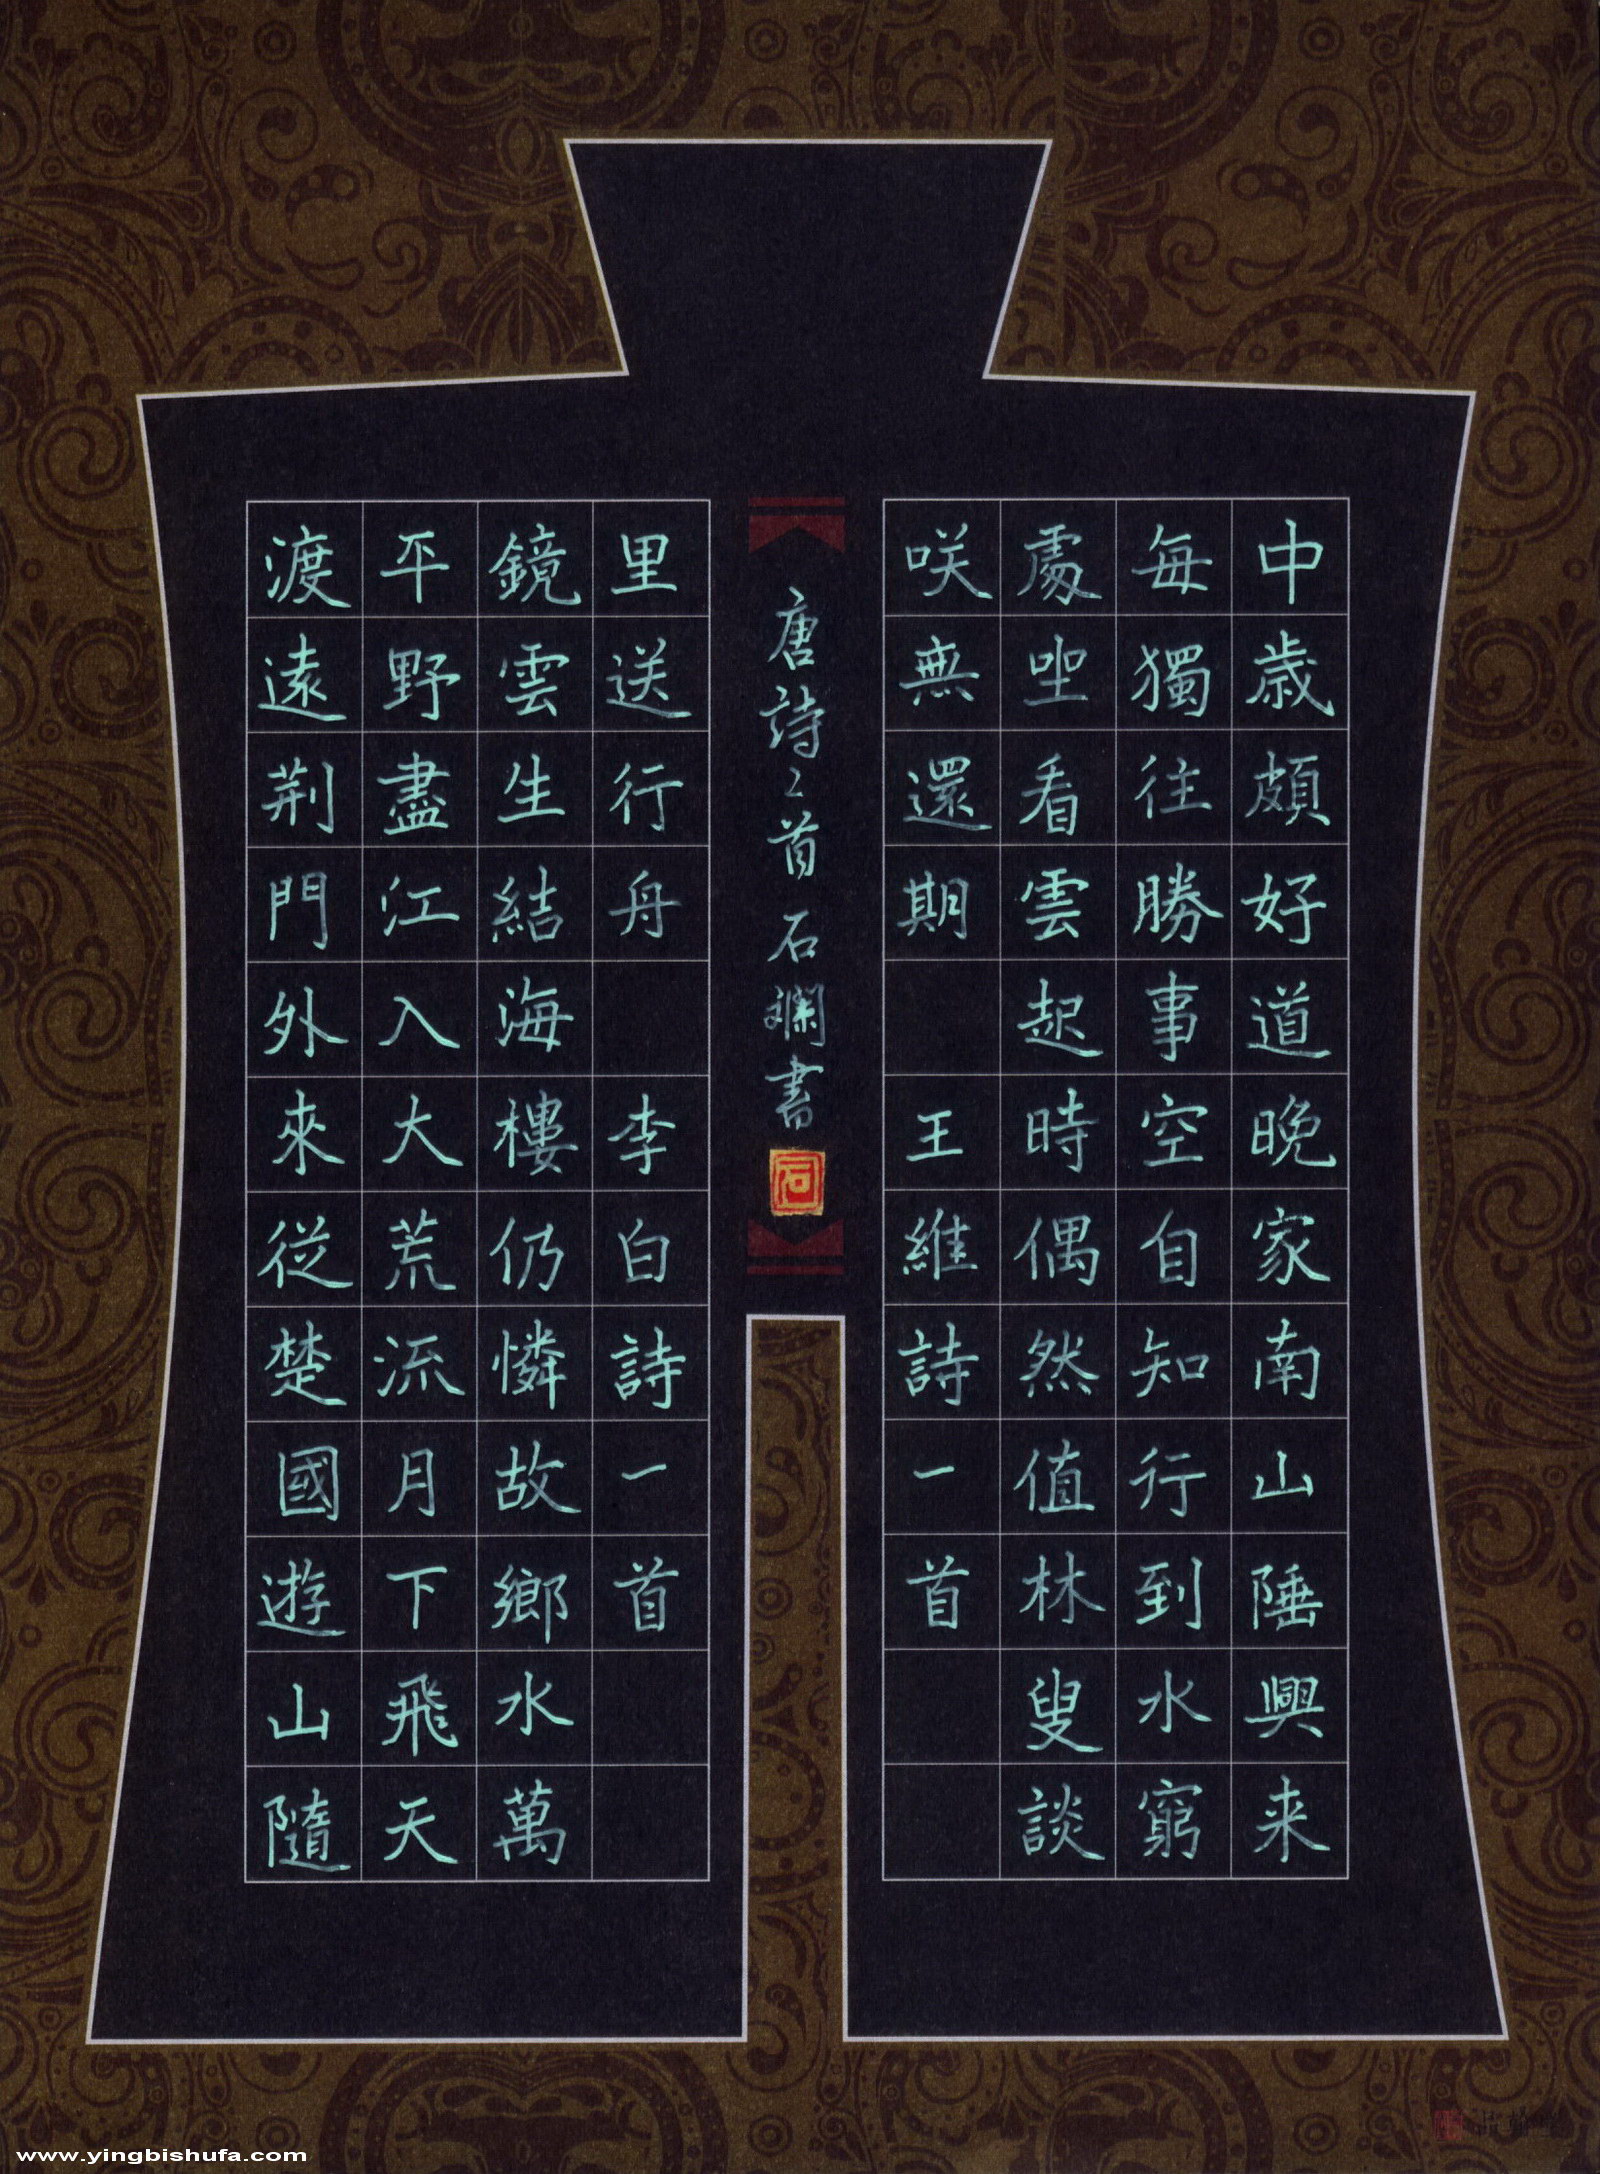 中歳頗好道晚家南山陲興来
每獨往勝事空自知行到水窮
處坐看雲起時偶然值林叟談
咲無還期 王維詩一首
唐詩二首 石斕書
石
渡遠荆門外來從楚國遊山隨
平野盡江入大荒流月下飛天
鏡雲生結海樓仍憐故鄉水萬
里送行舟 李白詩一首
www.yingbishufa.com